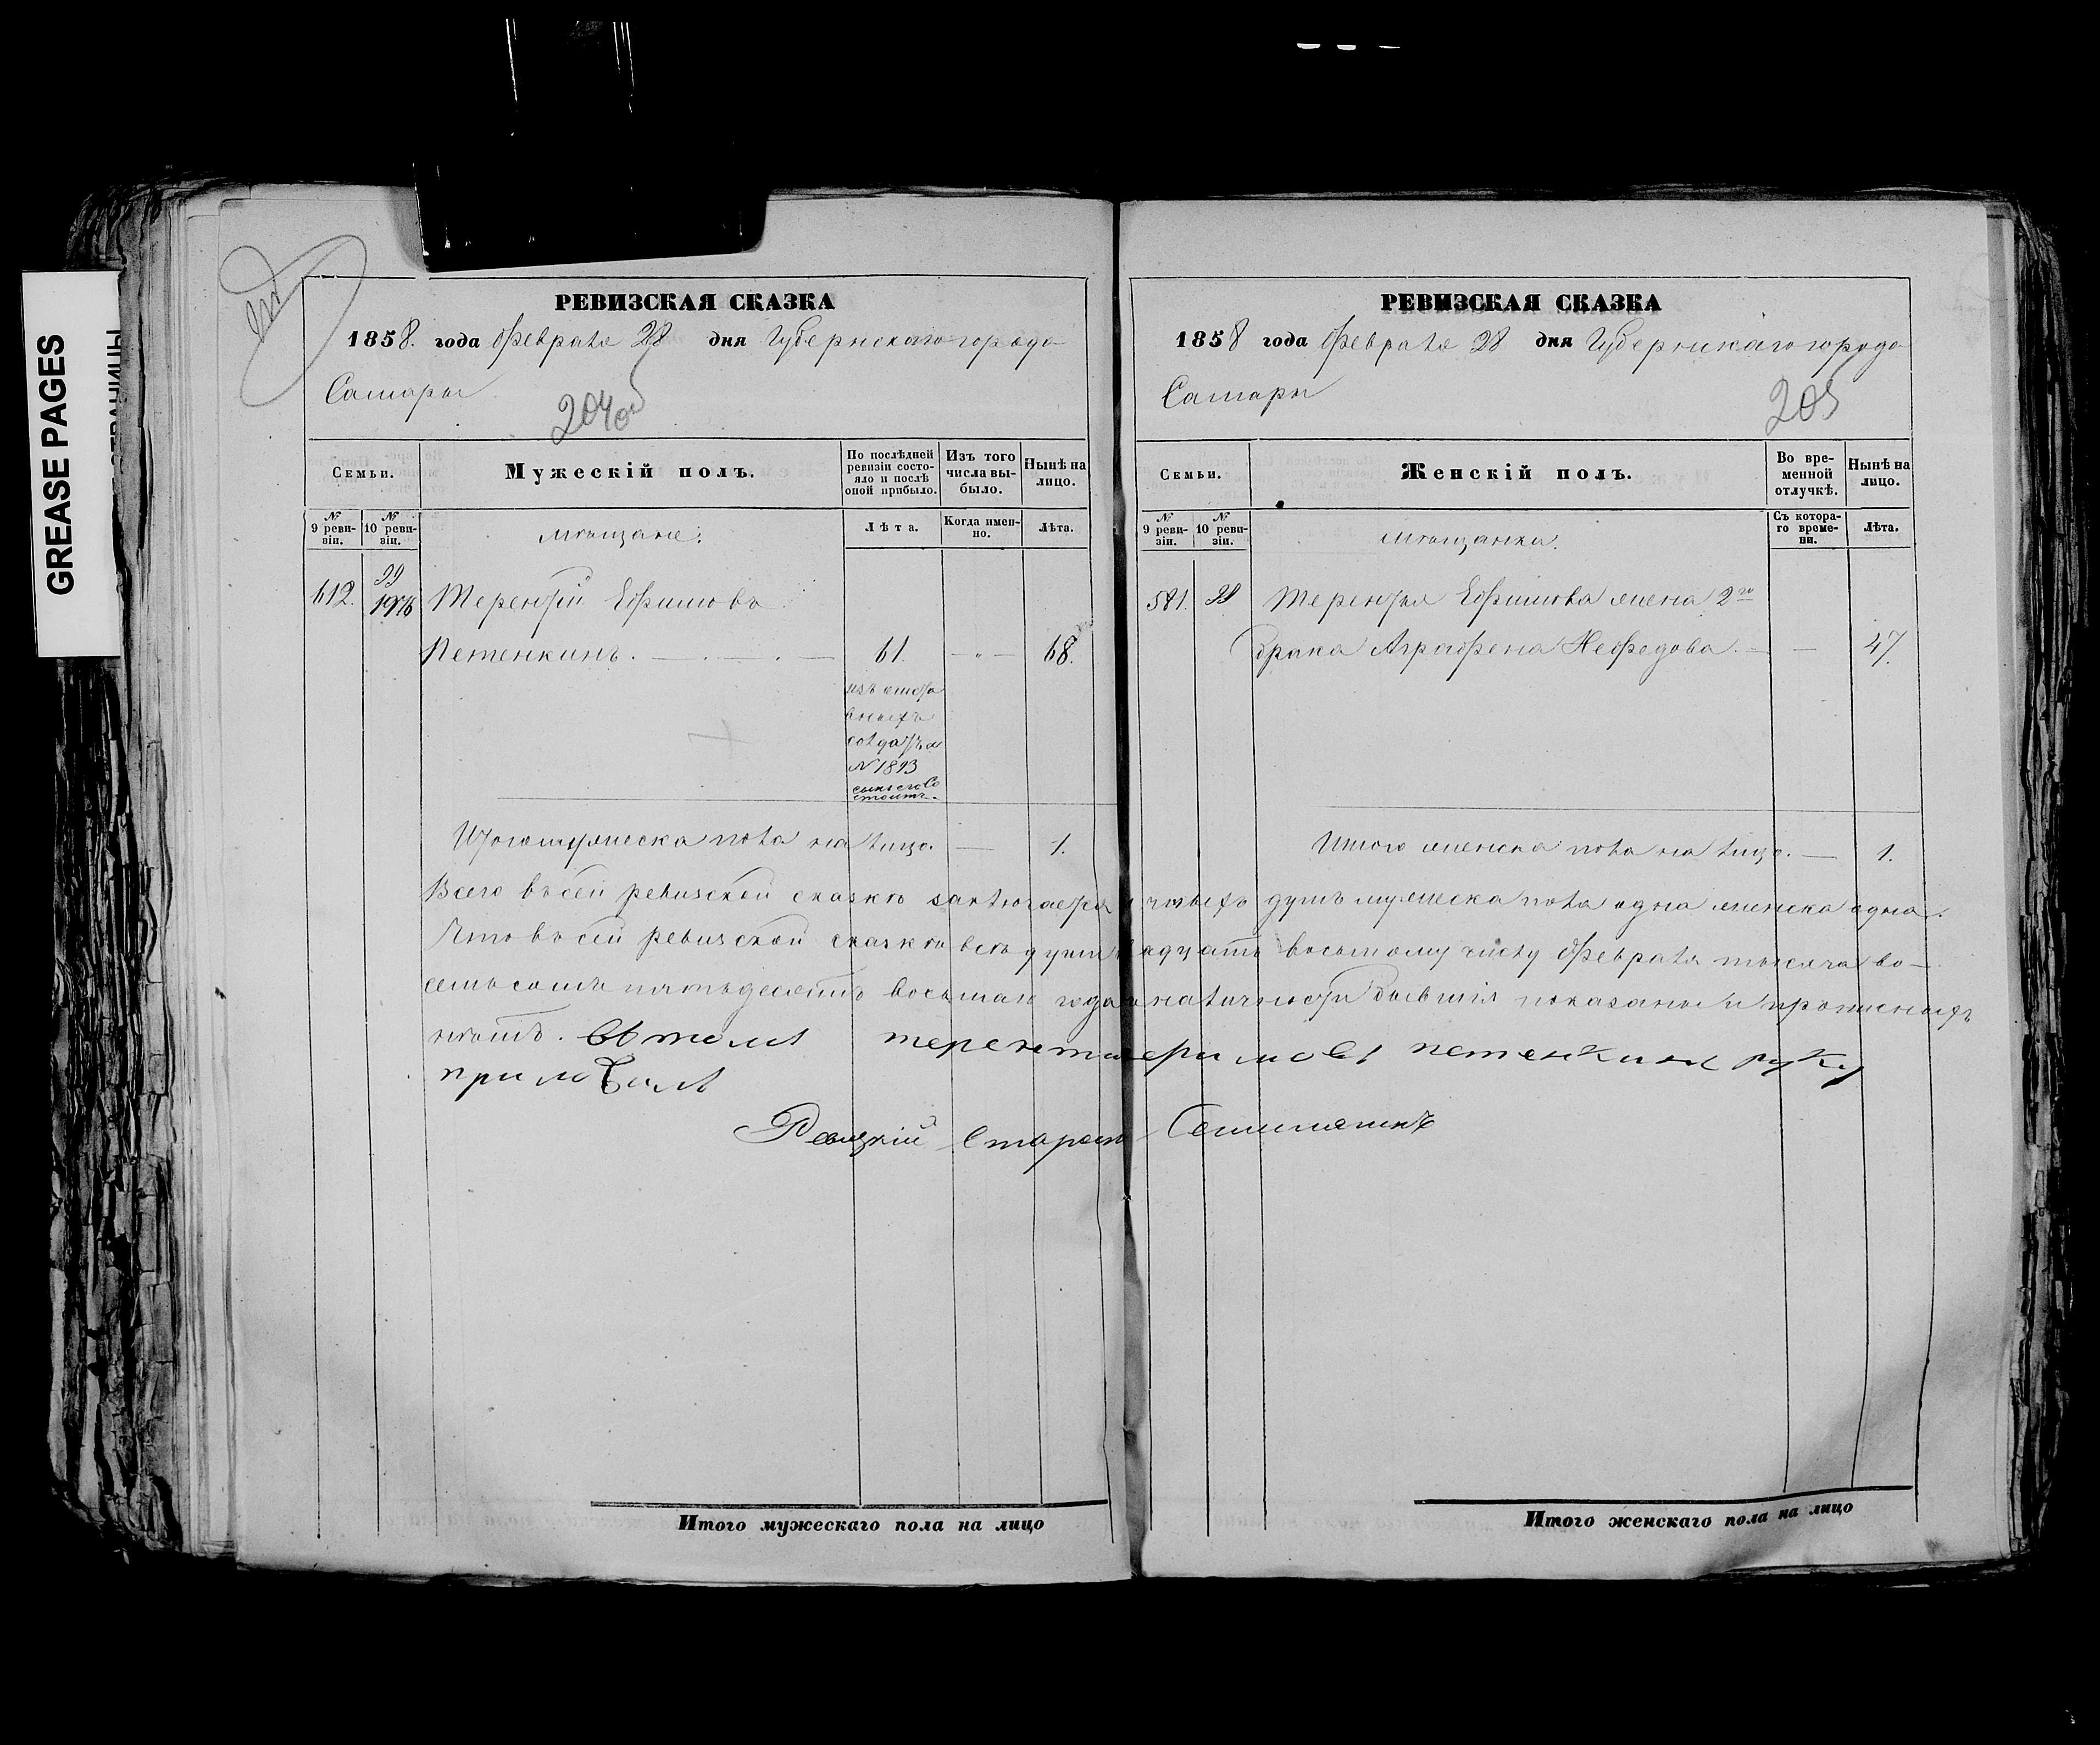 GREASE PAGES
РЕВИЗСКАЯ СКАЗКА
1858. года Февраля 28 дня Губернскаго города
Самары
204об
Семьи.
Мужескій полъ.
По послѣдней ревизіи состояло и послѣ оной прибыло.
Изъ того числа выбыло.
Нынѣ на лицо.
№ 9 ревизіи.
№ 10 ревизіи.
мѣщане:
Лѣта.
Когда именно.
Лѣта.
612.
Терентій Ефимовъ
Петенкинъ.
61.
68.
№ 1893
сынъ его со
стоитъ.
Итого мужеска пола на лицо. — 1.
РЕВИЗСКАЯ СКАЗКА
1858 года Февраля 28 дня Губернскаго города
Самары
205
Семьи.
Женскій полъ.
Во временной отлучкѣ.
Нынѣ на лицо.
№ 9 ревизіи.
№ 10 ревизіи.
мѣщанки.
Съ котораго времени.
Лѣта.
581.
Терентья Ефимова жена 2го
брака Аграфена Нефедова. — — 47.
Итого женска пола на лицо. — 1.
Всего въ сей ревизской сказкѣ заключается наличныхъ душъ мужеска пола одна женска одна.
Что въ сей ревизской сказкѣ всѣ души двадцать восьмому числу Февраля тысяча во-
семьсотъ пятьдесятъ восьмаго года на личности бывшія показаны и прописныхъ
нѣтъ. Терентий Ефимовъ Петенкинъ руку
приложилъ
Ревизкій Староста
Итого мужескаго пола на лицо
Итого женскаго пола на лицо